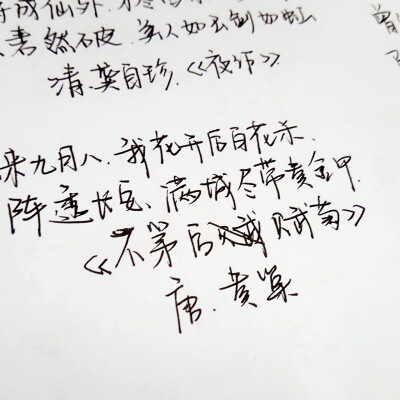 成仙外
砉然破.美人如玉剑如虹
清.龚自珍.《夜坐》
来九月八.我花开后百花杀.
阵透长安、满城尽带黄金甲.
《不第后赋菊》
唐.黄巢
曾